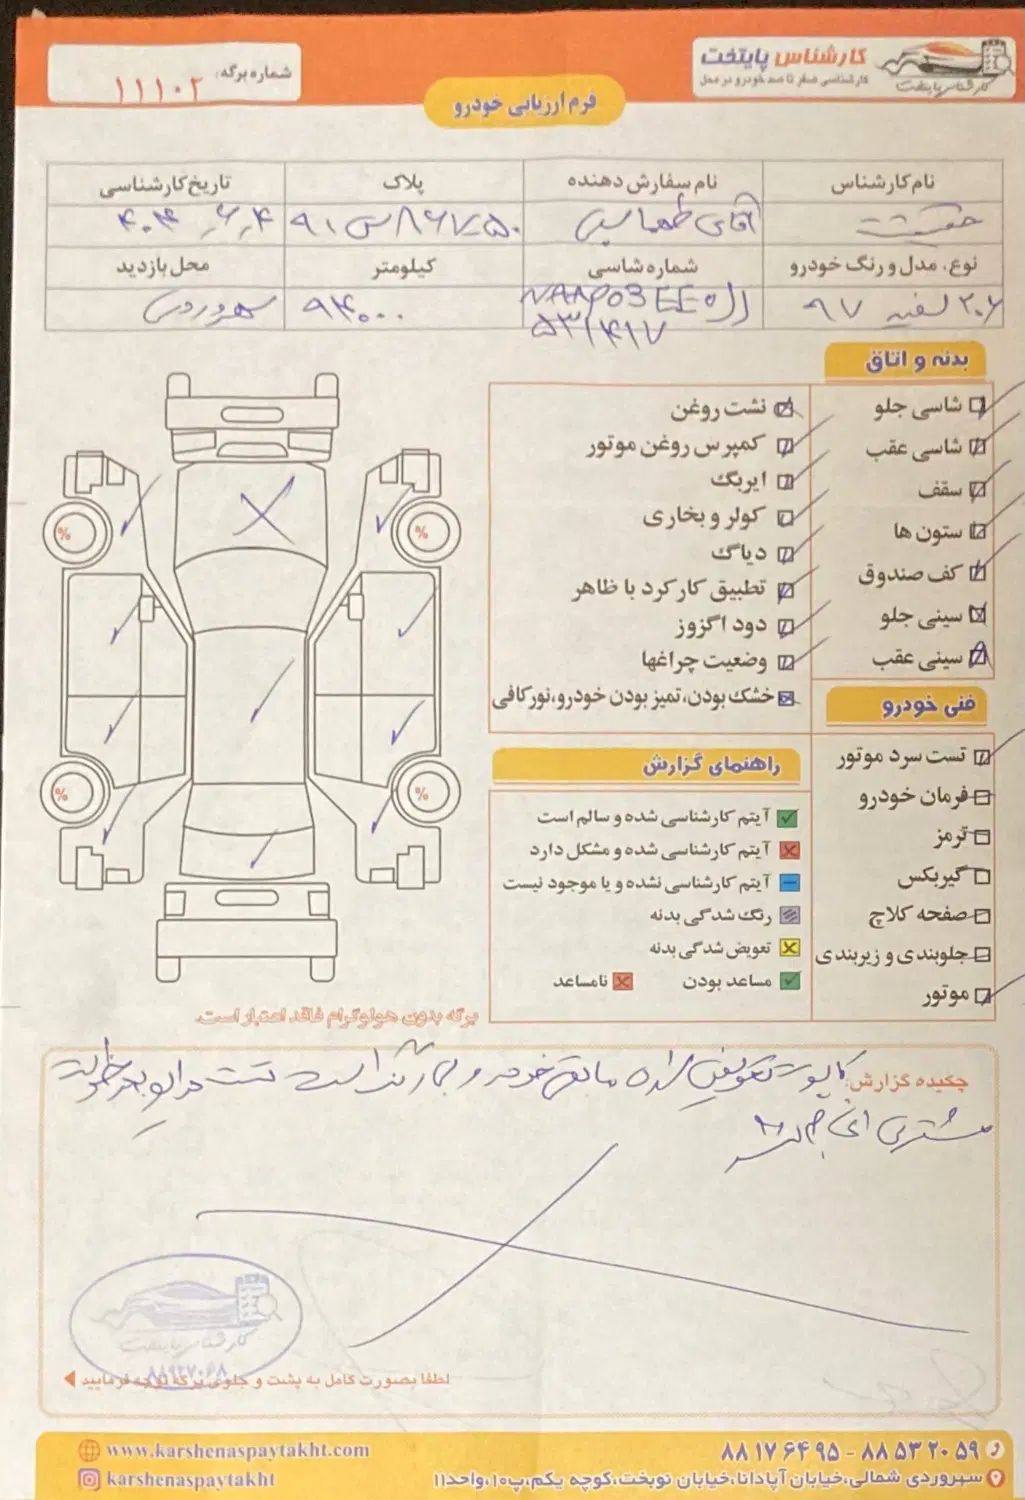 کارشناس پایتخت
کارشناسی صفر تا صد خودرو در محل
کارشناس پایتخت
شماره برگه:
۱۱۱۰۲
فرم ارزیابی خودرو
نام کارشناس
نام سفارش دهنده
پلاک
تاریخ کارشناسی
حقیقت
آقای طهماسبی
نوع، مدل و رنگ خودرو
شماره شاسی
کیلومتر
محل بازدید
۲۰۶ سفید ۹۷
۹۴۰۰۰
سهروردی
بدنه و اتاق
شاسی جلو
شاسی عقب
سقف
ستون ها
کف صندوق
سینی جلو
سینی عقب
نشت روغن
کمپرس روغن موتور
ایربگ
کولر و بخاری
دیاگ
تطبیق کارکرد با ظاهر
دود اگزوز
وضعیت چراغها
خشک بودن، تمیز بودن خودرو، نور کافی
فنی خودرو
تست سرد موتور
فرمان خودرو
ترمز
گیربکس
صفحه کلاچ
جلوبندی و زیربندی
موتور
راهنمای گزارش
آیتم کارشناسی شده و سالم است
آیتم کارشناسی شده و مشکل دارد
آیتم کارشناسی نشده و یا موجود نیست
رنگ شدگی بدنه
تعویض شدگی بدنه
مساعد بودن
نامساعد
%
%
%
%
برگه بدون هولوگرام فاقد اعتبار است.
چکیده گزارش:
کاپوت تعویض شده مابقی خودرو بی رنگ است تست
مشتری انجام نشد
کارشناس پایتخت
لطفا بصورت کامل به پشت و جلوی برگه توجه فرمایید
88176495 - 88532059
www.karshenaspaytakht.com
سهروردی شمالی، خیابان آپادانا، خیابان نوبخت، کوچه یکم، پ۱۰، واحد۱۱
karshenaspaytakht